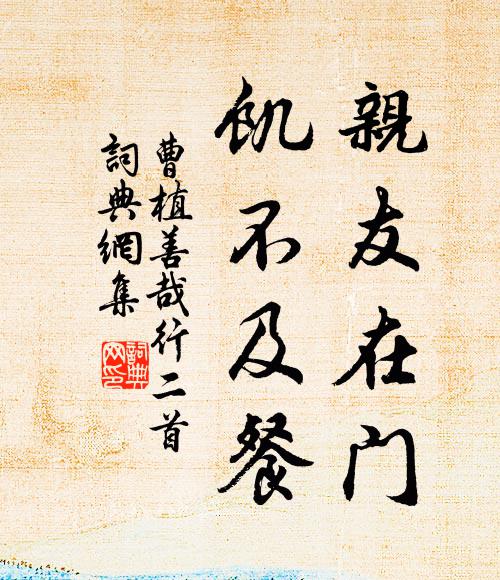 親友在门
飢不及餐
曹植善哉行二首
詞典網集
詞典
网印